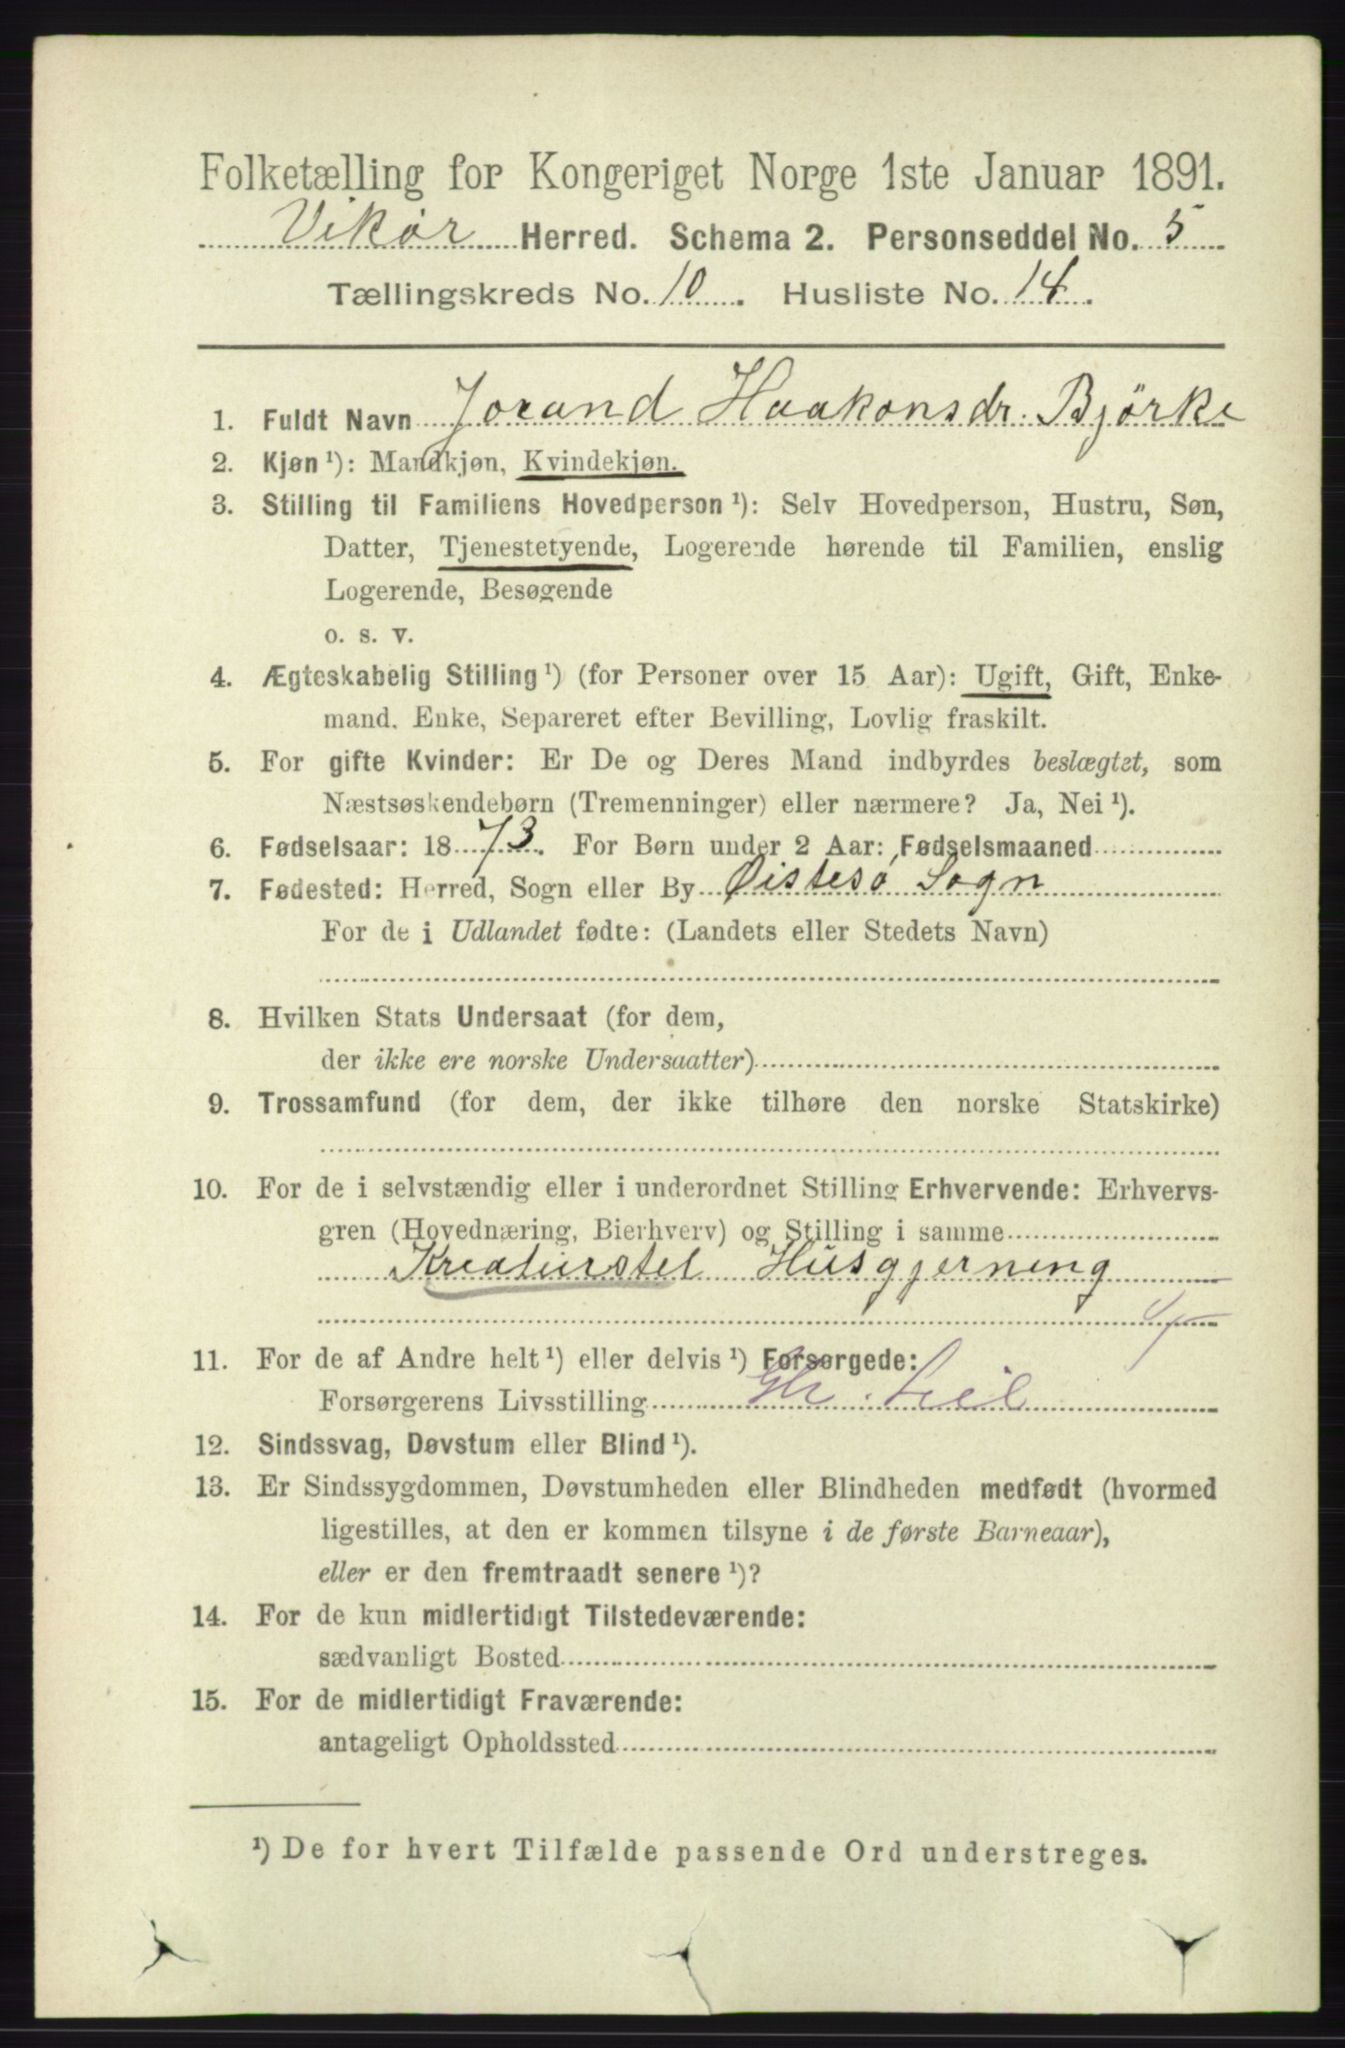 Folketælling for Kongeriget Norge 1ste Januar 1891.
Vikør Herred. Schema 2. Personseddel No. 5
Tællingskreds No. 10. Husliste No. 14.
1. Fuldt Navn Jorand Haakonsdr. Bjørke
2. Kjøn¹): Mandkjøn, Kvindekjøn.
3. Stilling til Familiens Hovedperson¹): Selv Hovedperson, Hustru, Søn,
Datter, Tjenestetyende, Logerende hørende til Familien, enslig
Logerende, Besøgende
o. s. v.
4. Ægteskabelig Stilling¹) (for Personer over 15 Aar): Ugift, Gift, Enke-
mand, Enke, Separeret efter Bevilling, Lovlig fraskilt.
5. For gifte Kvinder: Er De og Deres Mand indbyrdes beslægtet, som
Næstsøskendebørn (Tremenninger) eller nærmere? Ja, Nei¹).
6. Fødselsaar: 1873. For Børn under 2 Aar: Fødselsmaaned
7. Fødested: Herred, Sogn eller By Øistesø Sogn
For de i Udlandet fødte: (Landets eller Stedets Navn)
8. Hvilken Stats Undersaat (for dem,
der ikke ere norske Undersaatter)
9. Trossamfund (for dem, der ikke tilhøre den norske Statskirke)
10. For de i selvstændig eller i underordnet Stilling Erhvervende: Erhvervs-
gren (Hovednæring, Bierhverv) og Stilling i samme
Kreaturstel Husgjerning
11. For de af Andre helt¹) eller delvis¹) Forsørgede:
Forsørgerens Livsstilling
12. Sindssvag, Døvstum eller Blind¹).
13. Er Sindssygdommen, Døvstumheden eller Blindheden medfødt (hvormed
ligestilles, at den er kommen tilsyne i de første Barneaar),
eller er den fremtraadt senere¹)?
14. For de kun midlertidigt Tilstedeværende:
sædvanligt Bosted
15. For de midlertidigt Fraværende:
antageligt Opholdssted
¹) De for hvert Tilfælde passende Ord understreges.